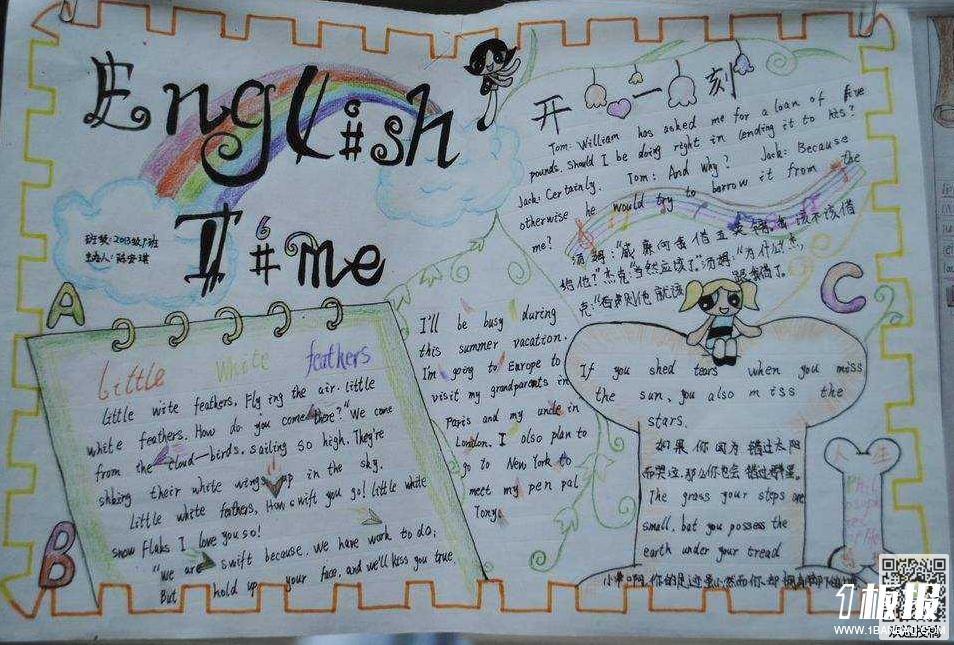 English
Time
班级:2013级1班
A
B
C
Little White feathers
little wite feathers. Flying the air. little
white feathers. How do you come here?" We come
from the cloud-birds. sailing so high. They're
shking their white wings up in the sky.
Little white feathers, How swift you go! little white
snow Flaks I love you so!
"We are swift because, we have work to do;
But hold up your face, and we'll kiss you true.
I'll be busy during
this summer vacation.
I'm going to Europe to
visit my grandparents in
Paris and my uncle in
London. I also plan to
go to New York to
meet my pen pal
Tony.
开心一刻
Tom: William has asked me for a loan of five
pounds. Should I be doing right in lending it to hits?
Jack: Certainly. Tom: And why? Jack: Because
otherwise he would try to borrow it from the
me?
汤姆:"威廉向我借五英镑,我该不该借
给他?"杰克:"当然应该了."汤姆:"为什么?"杰
克:"否则他就该跟我借了
If you shed tears when you miss
the sun, you also miss the
stars.
如果你因为错过太阳
而哭泣.那么你也会错过群星。
The grass your steps are
small, but you possess the
earth under your tread
小草啊,你的足迹虽小,然而你却拥有脚下的
人生
1板报
WWW.1BANBAO.COM
欢迎投稿